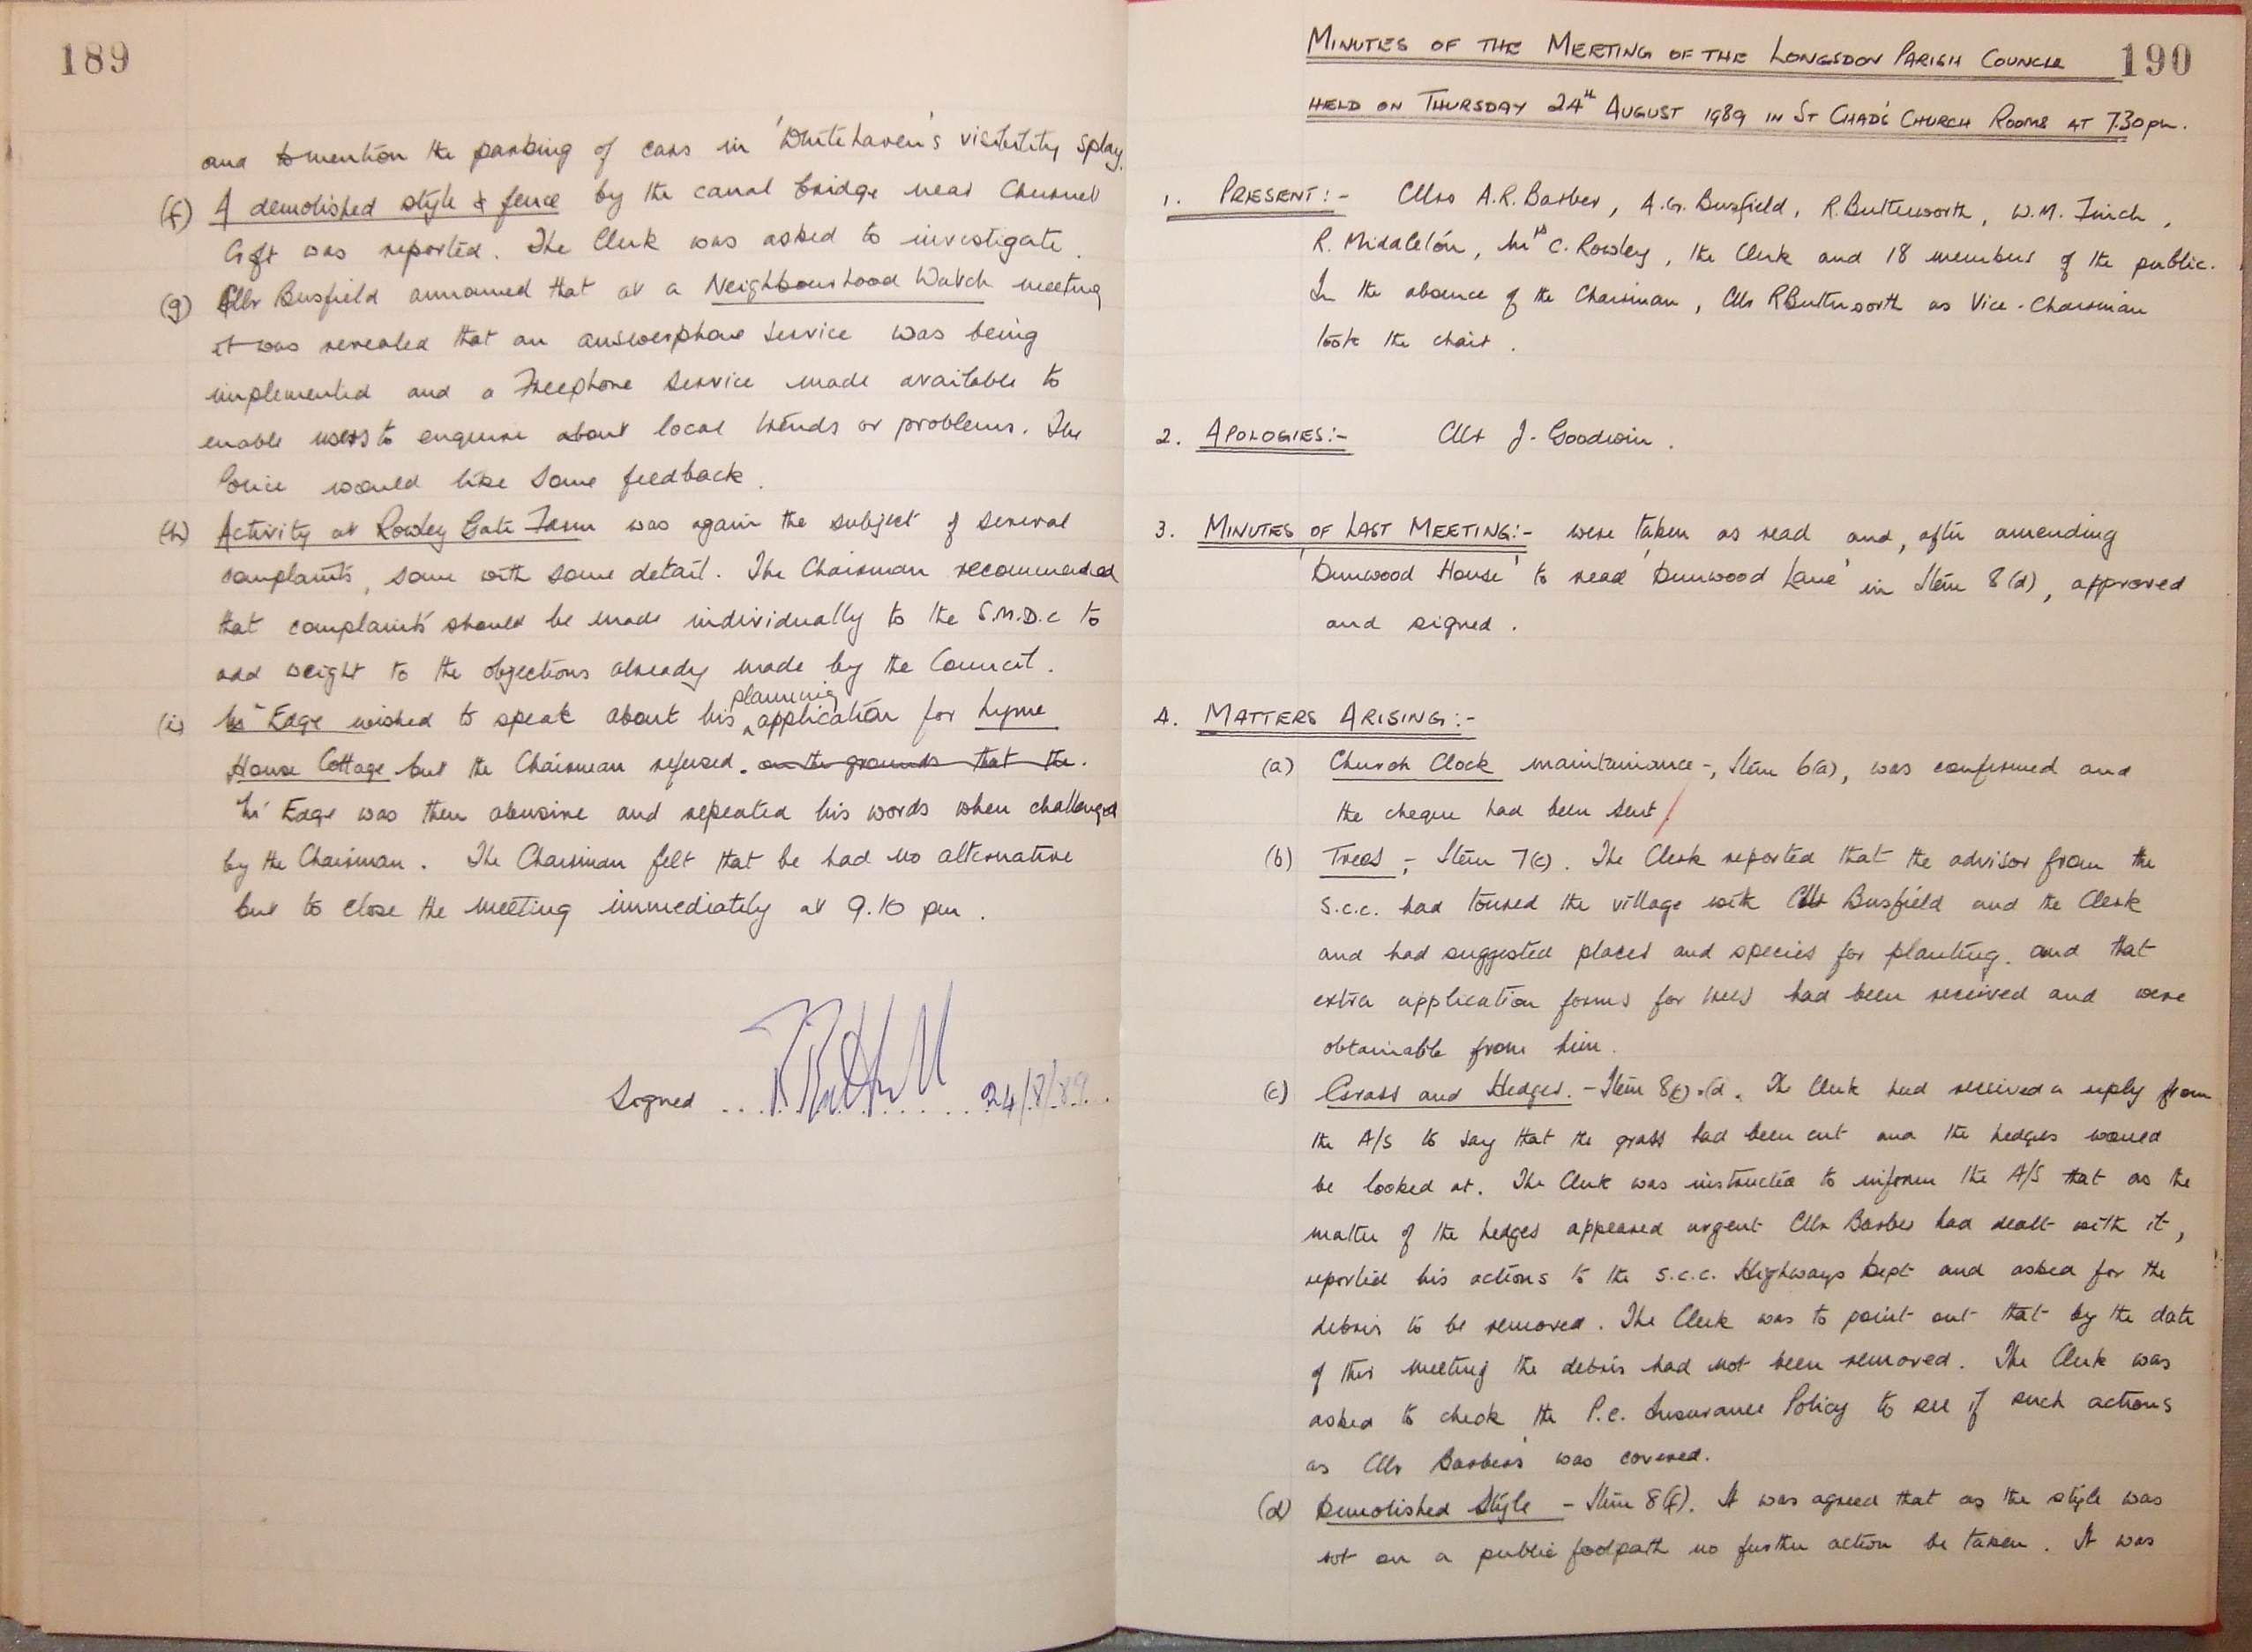 189
and to mention the parking of cars in 'Whitehaven's visibility splay.
(f) A demolished style & fence by the canal bridge near Churnet
Croft was reported. The Clerk was asked to investigate.
(g) Cllr Busfield announced that at a Neighbourhood Watch meeting
it was revealed that an answerphone service was being
implemented and a Freephone service made available to
enable users to enquire about local trends or problems. The
Police would like some feedback.
(h) Activity at Rowley Gate Farm was again the subject of several
complaints, some with some detail. The Chairman recommended
that complaints should be made individually to the S.M.D.C to
add weight to the objections already made by the Council.
planning
(i) Mr Edge wished to speak about his application for Lyme
House Cottage but the Chairman refused. on the grounds that the.
Mr Edge was then abusive and repeated his words when challenged
by the Chairman. The Chairman felt that he had no alternative
but to close the meeting immediately at 9.10 pm.
Signed 24/8/89
MINUTES OF THE MEETING OF THE LONGSDON PARISH COUNCIL 190
HELD ON THURSDAY 24th AUGUST 1989 IN ST CHAD'S CHURCH ROOMS AT 7.30pm.
1. PRESENT:- Cllrs A.R. Barber, A.G. Busfield, R. Butterworth, W.M. Finch,
R. Middleton, Mrs C. Rowley, the Clerk and 18 members of the public.
In the absence of the Chairman, Cllr R Butterworth as Vice-Chairman
took the chair.
2. APOLOGIES:- Cllr J. Goodwin.
3. MINUTES OF LAST MEETING:- were taken as read and, after amending
'Dunwood House' to read 'Dunwood Lane' in Item 8(d), approved
and signed.
4. MATTERS ARISING:-
(a) Church Clock maintainance -, Item 6(a), was confirmed and
the cheque had been sent.
(b) Trees, - Item 7(c). The Clerk reported that the advisor from the
S.C.C. had toured the village with Cllr Busfield and the Clerk
and had suggested places and species for planting. and that
extra application forms for trees had been received and were
obtainable from him.
(c) Grass and Hedges. - Item 8(c)+(d. The Clerk had received a reply from
the A/S to say that the grass had been cut and the hedges would
be looked at. The Clerk was instructed to inform the A/S that as the
matter of the hedges appeared urgent Cllr Barber had dealt with it,
reported his actions to the S.C.C. Highways Dept and asked for the
debris to be removed. The Clerk was to point out that by the date
of this meeting the debris had not been removed. The Clerk was
asked to check the P.C. Insurance Policy to see if such actions
as Cllr Barber's was covered.
(d) Demolished Style - Item 8(f). It was agreed that as the style was
not on a public footpath no further action be taken. It was